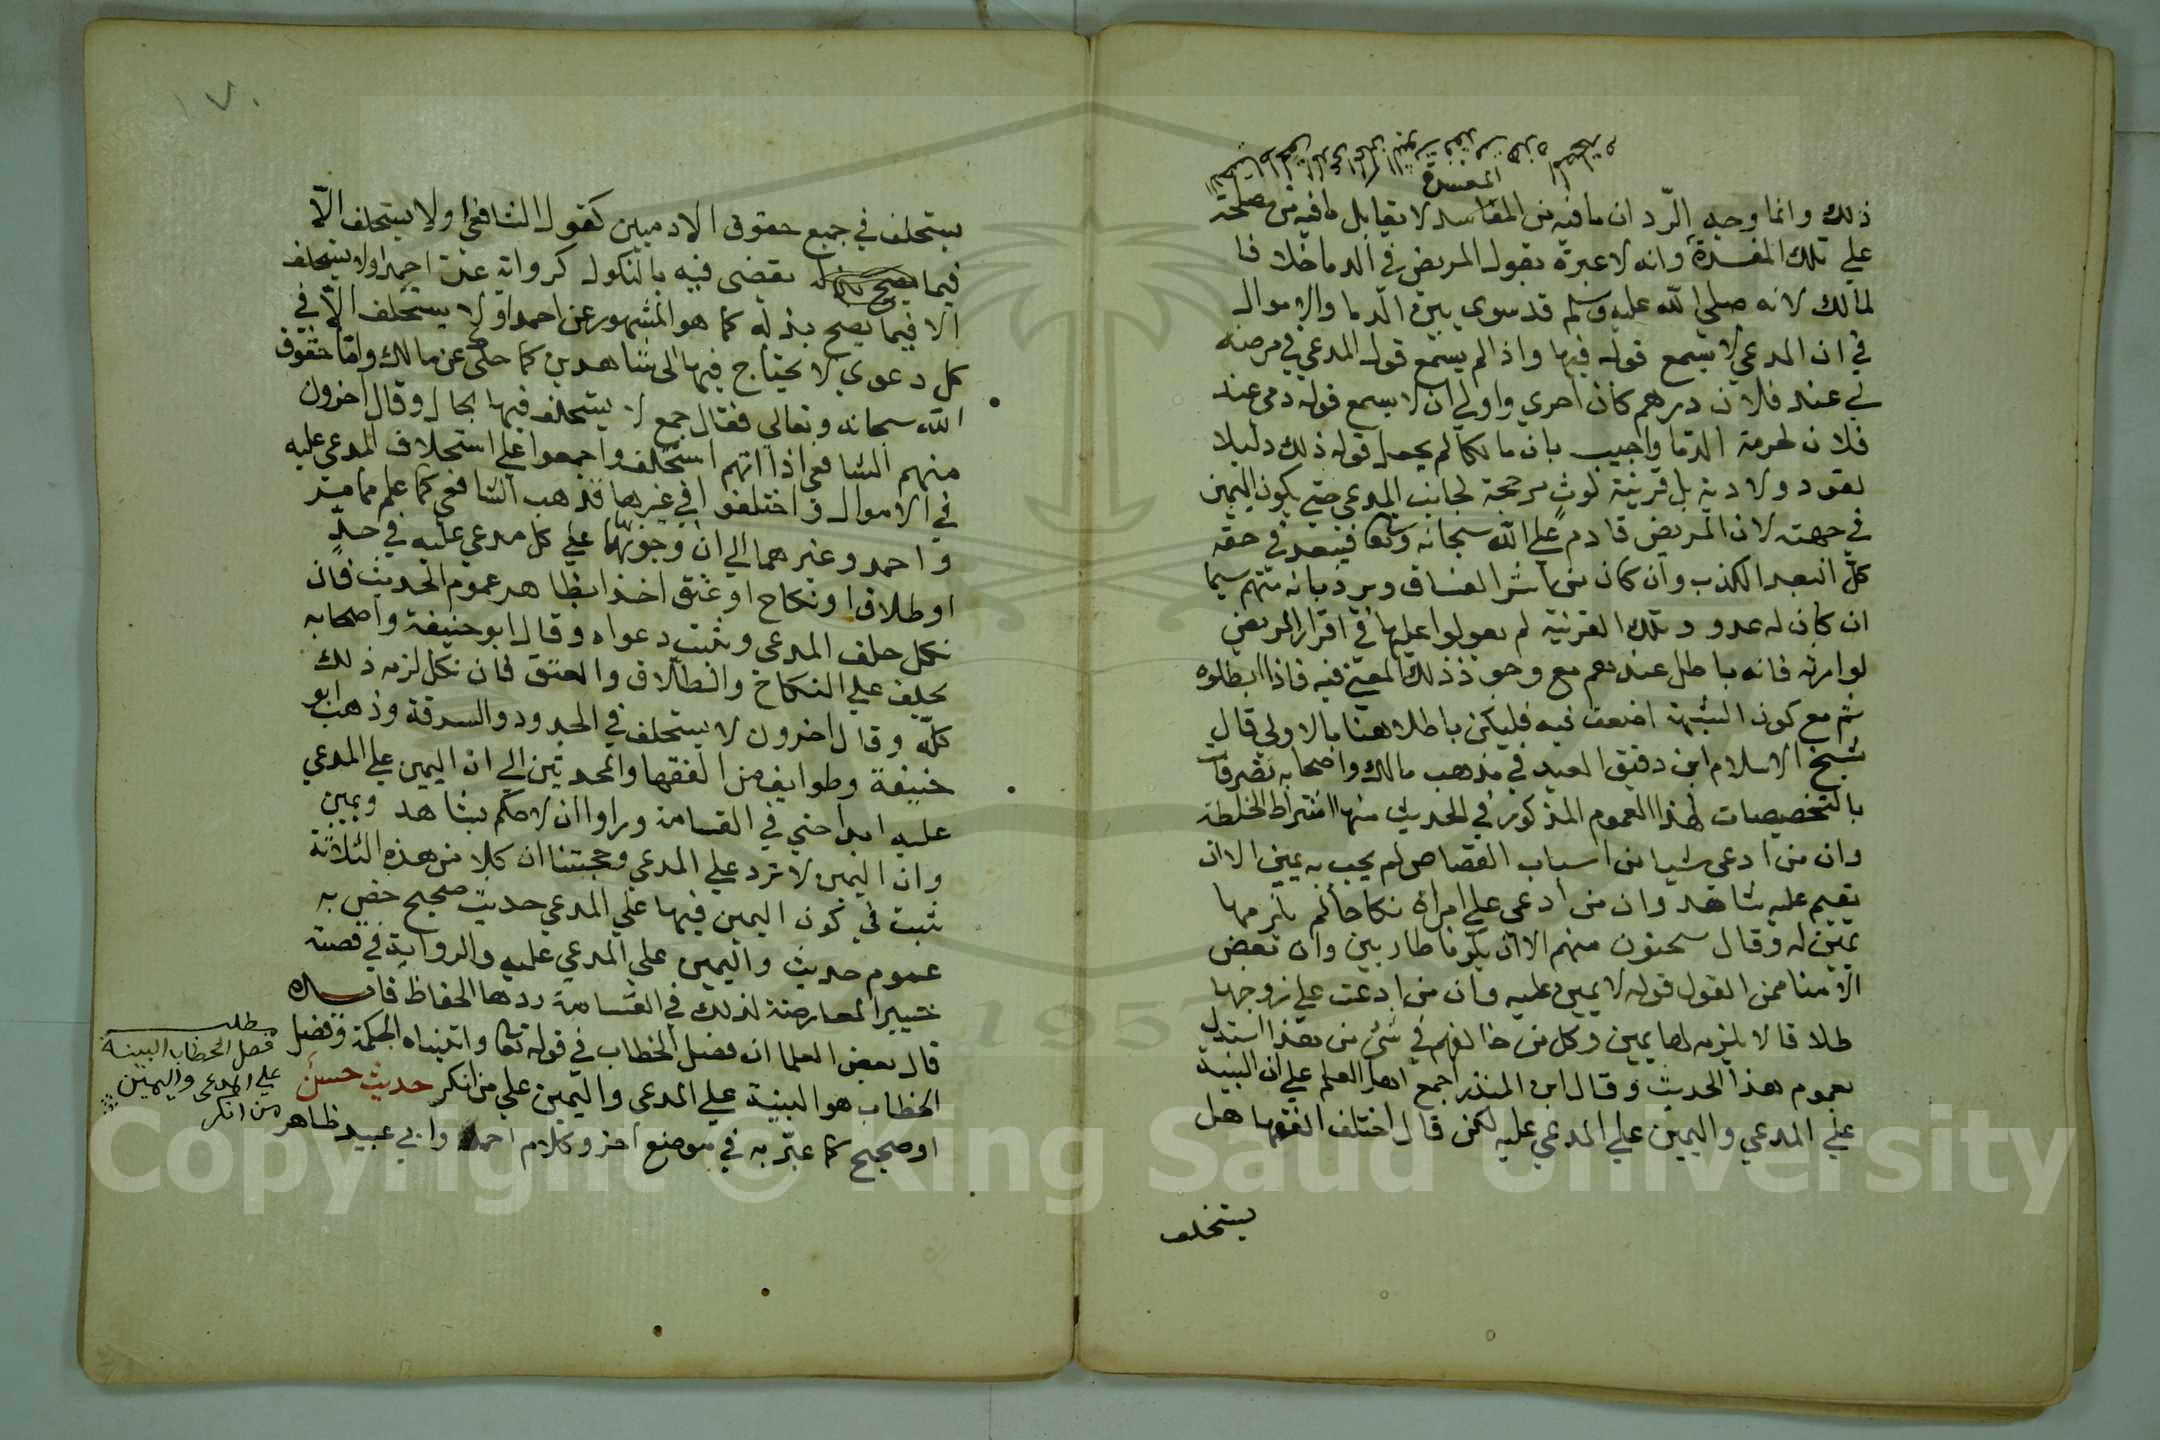 ذلك وانما وجه الرد ان ما فيه من المفاسد لا يقابل ما فيه من مصلحة
المفسدة
على تلك المفسدة وانه لا عبرة بقول المريض في الدما خلافا
لمالك لانه صلى الله عليه وسلم قد سوى بين الدما والاموال
في ان المدعي لا يسمع قوله فيها واذا لم يسمع قول المدعي في مرضه
لي عند فلان درهم كان احرى واولى ان لا يسمع قوله دمي عند
فلان لحرمة الدما واجيب بان مالكا لم يجعل قوله ذلك دليلا
لقود ولا دية بل قرينة لوث مرجحة لجانب المدعي حتى يكون اليمين
في جهته لان المريض قادم على الله سبحانه وتعا فيبعد في حقه
كل البعد الكذب وان كان من اشر الفساق ويرد بانه متهم سيما
ان كان له عدو وتلك القرينة لم يعولوا عليها في اقرار المريض
لوارثه فانه باطل عندهم مع وجود ذلك المعنى فيه فاذا ابطلوه
ثم مع كون الشبهة اضعف فيه فليكن باطلا هنا بالاولى قال
شيخ الاسلام ابن دقيق العيد في مذهب مالك واصحابه تصرفات
بالتخصيصات لهذا العموم المذكور في الحديث منها اشتراط الخلطة
وان من ادعى شيا من اسباب القصاص لم يجب به يمين الا ان
يقيم عليه شاهد وان من ادعى على امراة نكاحا لم يلزمها
يمين له وقال سحنون منهم الا ان يكونا طاريين وان بعض
الامنا ممن القول قوله لا يمين عليه وان من ادعت على زوجها
طلاقا لا يلزمه لها يمين وكل من خالفهم في شئ من هذا استدل
بعموم هذا الحديث وقال ابن المنذر اجمع اهل العلم على ان البينة
على المدعي واليمين على المدعي عليه لكن قال اختلف الفقها هل
يستحلف
١٧٠
يستحلف في جميع حقوق الادميين كقول الشافعي او لا يستحلف الا
فيما يقضى فيه بالنكول كرواية عن احمد او لا يستحلف
الا فيما يصح بذله كما هو المشهور عن احمد او لا يستحلف الا في
كل دعوى لا يحتاج فيها الى شاهدين كما حكي عن مالك واما حقوق
الله سبحانه وتعالى فقال جمع لا يستحلف فيها بحال وقال اخرون
منهم الشافعي اذا اتهم استحلف واجمعوا على استحلاف المدعى عليه
في الاموال واختلفوا في غيرها فذهب الشافعي كما علم مما مر
واحمد وغيرهما الى ان وجوبها على كل مدعى عليه في حد
او طلاق او نكاح او عتق اخذا بظاهر عموم الحديث فان
نكل حلف المدعي وثبت دعواه وقال ابو حنيفة واصحابه
يحلف على النكاح والطلاق والعتق فان نكل لزمه ذلك
كله وقال اخرون لا يستحلف في الحدود والسرقة وذهب ابو
حنيفة وطوايف من الفقها والمحدثين الى ان اليمين على المدعي
عليه ابدا حتى في القسامة وراوا ان لا حكم بشاهد ويمين
وان اليمين لا ترد على المدعي وحجتنا ان كلا من هذه الثلاثة
ثبت في كون اليمين فيها على المدعي حديث صحيح خص به
عموم حديث واليمين على المدعي عليه والرواية في قصة
خيبر المعارضة لذلك في القسامة ردها الحفاظ
قال بعض العلما ان فصل الخطاب في قوله تعا واتيناه الحكمة وفصل
الخطاب هو البينة على المدعي واليمين على من انكر حديث حسن
او صحيح كما عبر به في موضع اخر وكلام احمد وابي عبيد ظاهر
مطلب
فصل الخطاب البينة
على المدعي واليمين
من انكر
1957
Copyright © King Saud University